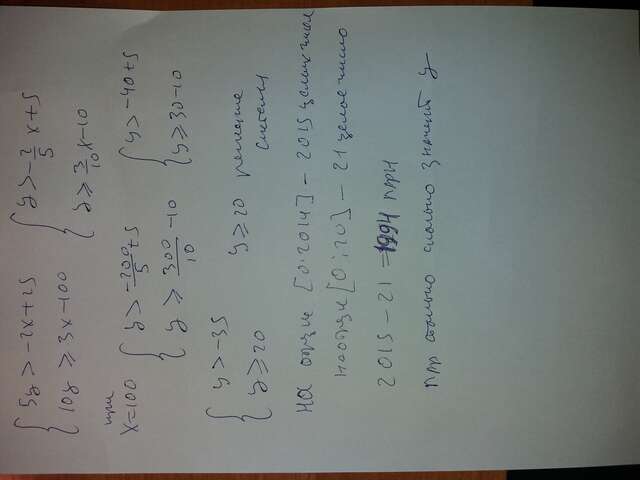 5y > -2x+25     y > -2/5 x+5
10y ≥ 3x-100     y ≥ 3/10 x-10
при
x=100     y > -200/5 +5     y > -40+5
y ≥ 300/10 -10     y ≥ 30-10
y > -35
y ≥ 20     y ≥ 20 решение
системы
на отрезке [0;2014] - 2015 целых чисел
на отрезке [0;20] - 21 целое число
2015 - 21 = 1994 пары
пар столько сколько значений y